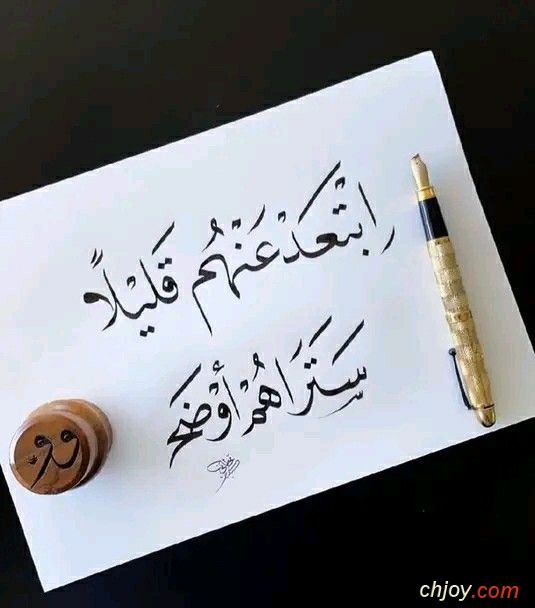 ابْتَعَدْ عَنْهُم قَلِيْلاً
سَتَرَاهُمْ أَوْضَح
chjoy.com